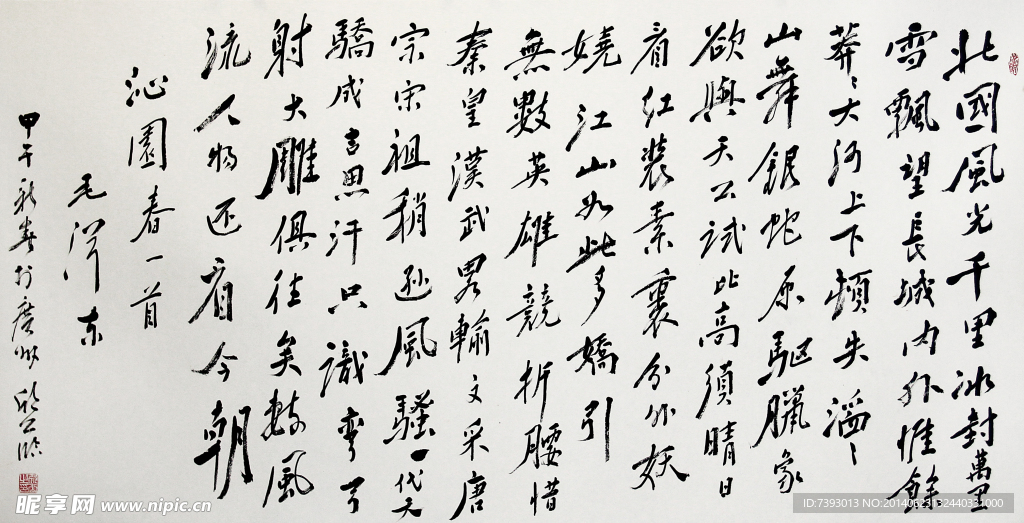 北國風光千里冰封萬里
雪飄望長城内外惟餘
莽々大河上下頓失滔々
山舞銀蛇原驅臘象
欲與天公試比高須晴日
看红裝素裹分外妖
嬈江山如此多嬌引
無數英雄競折腰惜
秦皇漢武畧輸文采唐
宗宋祖稍逊風騷一代天
驕成吉思汗只識彎弓
射大雕俱往矣数風
流人物还看今朝
沁園春一首
毛泽东
甲午新春於廣州
昵享网 www.nipic.cn
ID:7393013 NO:20140623132440331000